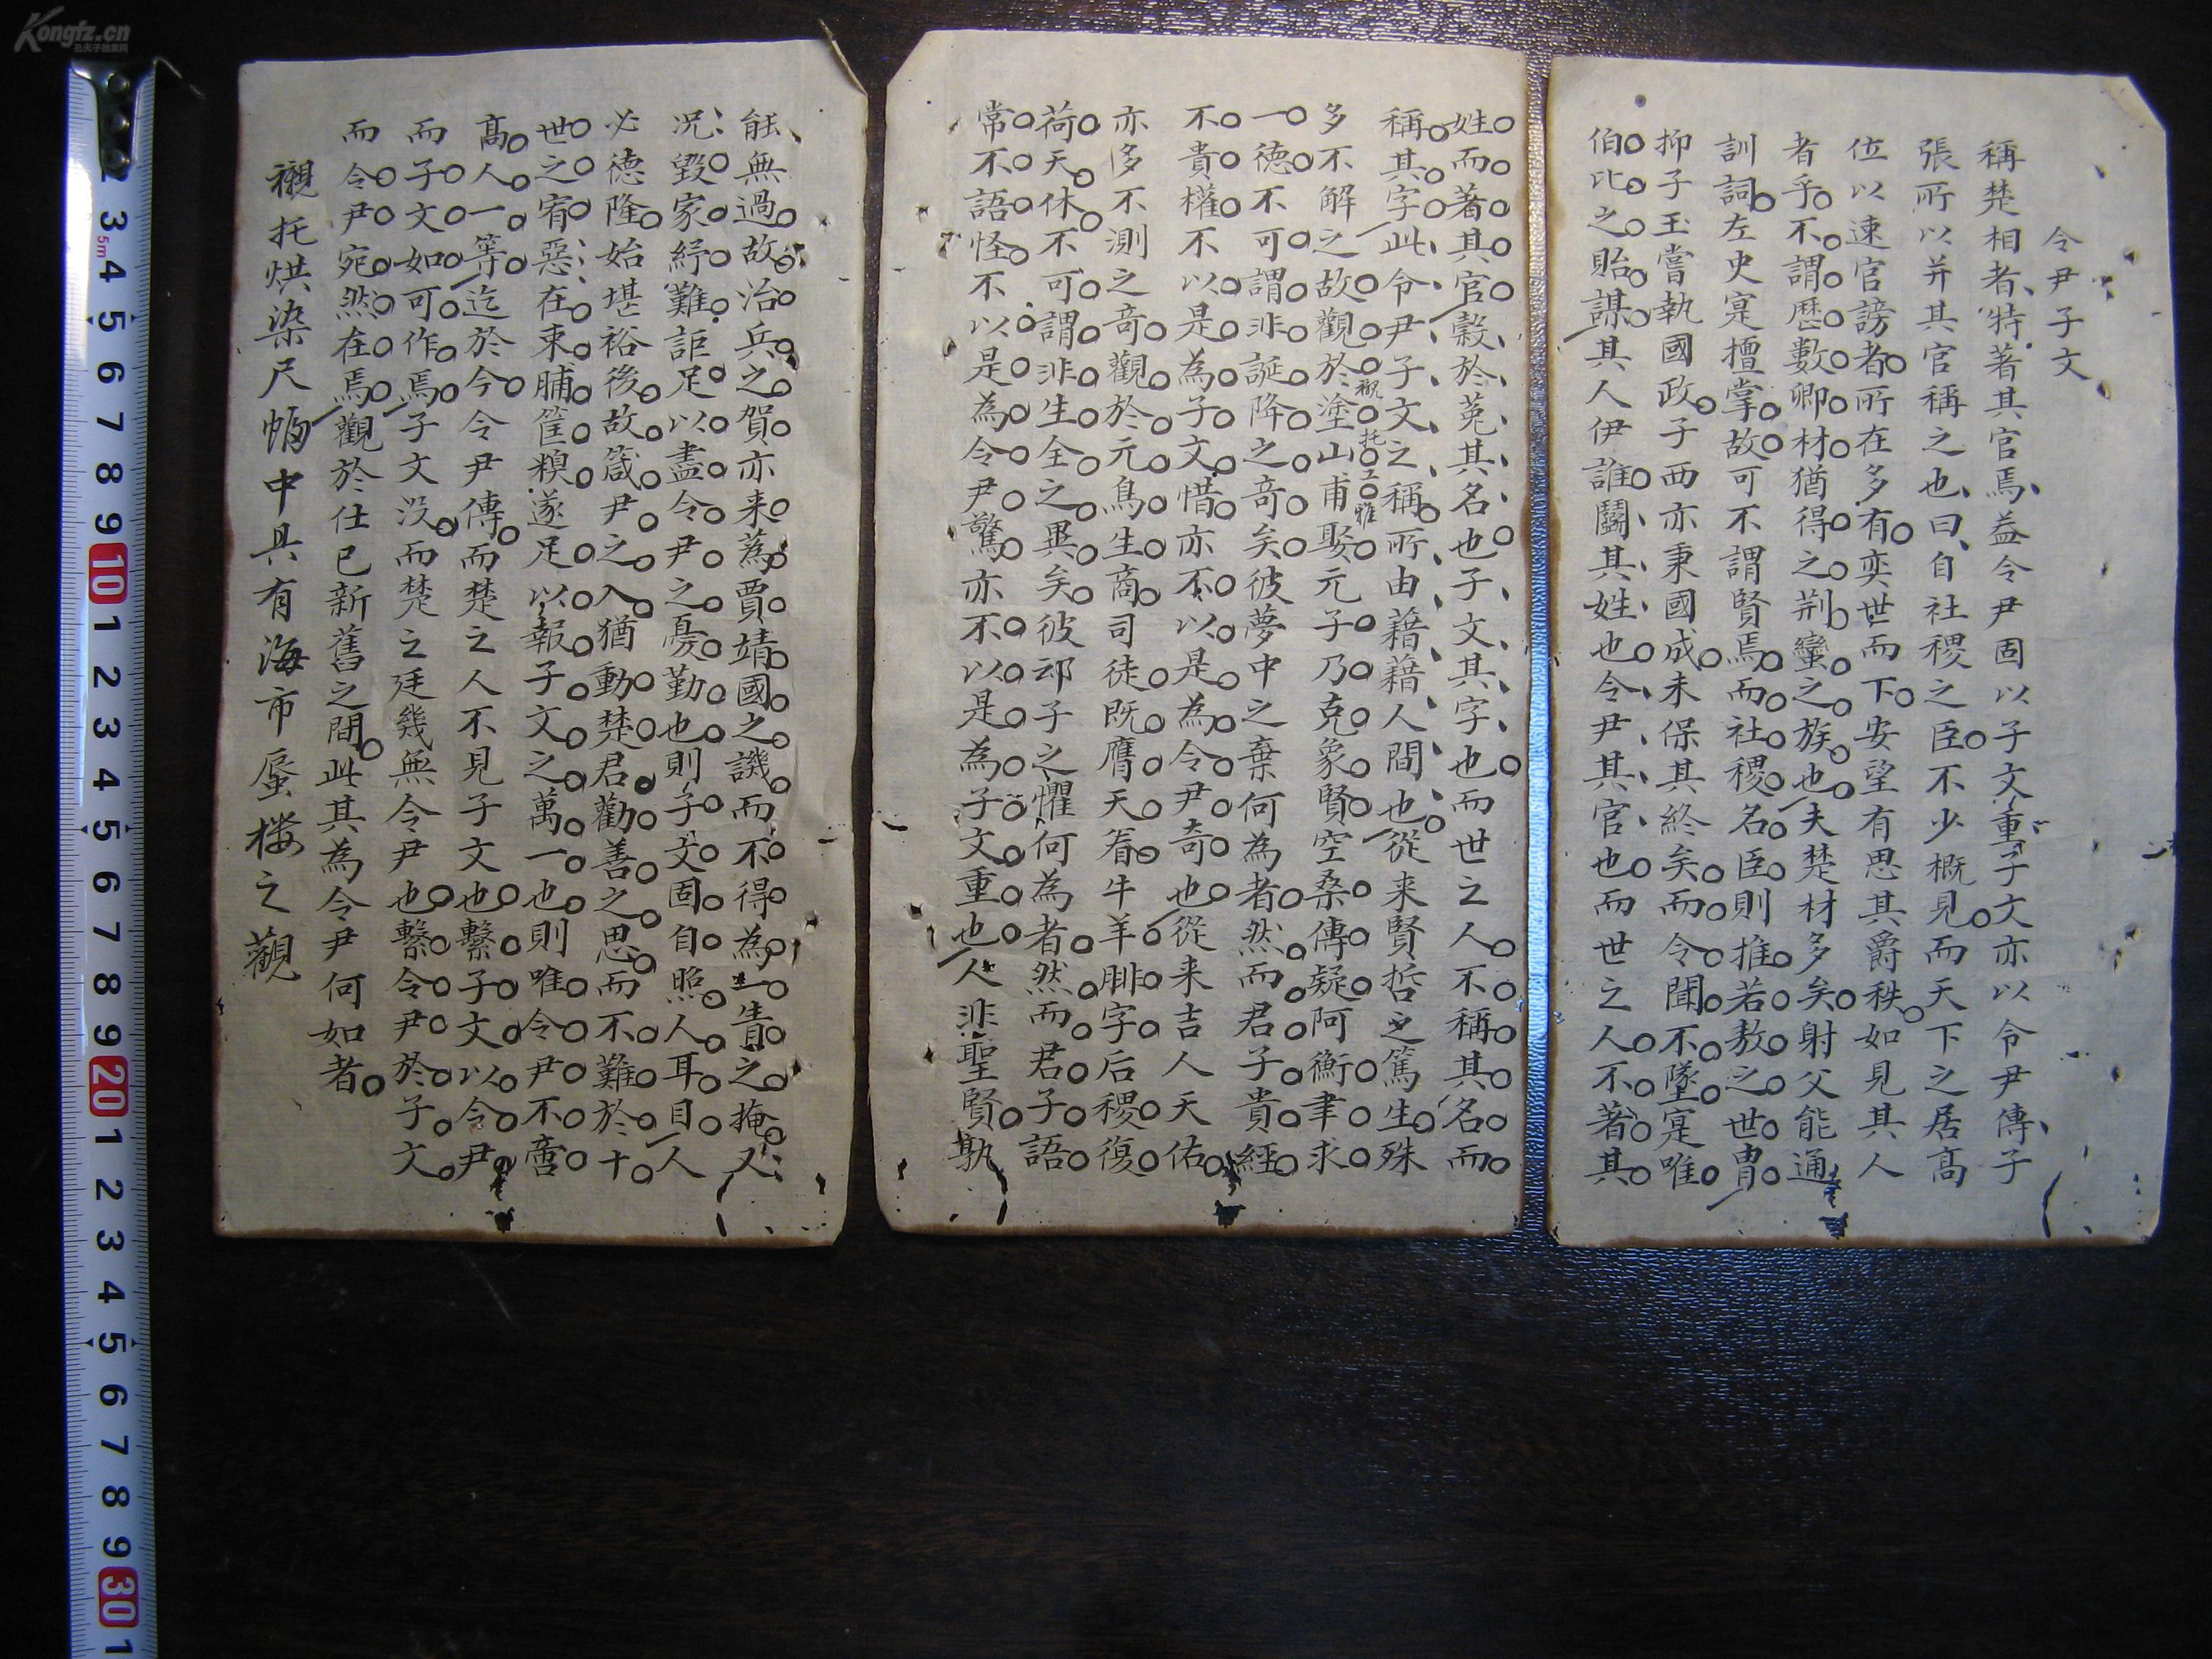 令尹子文
稱楚相者特著其官焉蓋令尹固以子文重子文亦以令尹傳子
張所以并其官稱之也曰自社稷之臣不少概見而天下之居高
位以速官謗者所在多有奕世而下安望有思其爵秩如見其人
者乎不謂歷數卿材猶得之荆蠻之族也夫楚材多矣射父能通
訓詞左史寔擅掌故可不謂賢焉而社稷名臣則推若敖之世胄
抑子玉嘗執國政子西亦秉國成未保其終矣而令聞不墜寔唯
伯比之貽謀其人伊誰鬬其姓也令尹其官也而世之人不著其
姓而著其官穀於菟其名也子文其字也而世之人不稱其名而
稱其字此令尹子文之稱所由藉藉人間也從来賢哲之篤生殊
多不解之故觀於塗山甫娶元子乃克象賢空桑傳疑阿衡聿求
一德不可謂非誕降之奇矣彼夢中之棄何為者然而君子貴經
不貴權不以是為子文惜亦不以是為令尹奇也從来吉人天佑
亦多不測之奇觀於元鳥生商司徒既膺天眷牛羊腓字后稷復
荷天休不可謂非生全之異矣彼邧子之懼何為者然而君子語
常不語怪不以是為令尹驚亦不以是為子文重也人非聖賢孰
能無過故治兵之賀亦来蒍賈靖國之譏而不得為一眚之掩又
况毀家紓難詎足以盡令尹之憂勤也則子文固自照人耳目人
必德隆始堪裕後故箴尹之入猶動楚君勸善之思而不難於十
世之宥惡在束脯筐糗遂足以報子文之萬一也則唯令尹不啻
高人一等迄於今令尹傳而楚之人不見子文也繫子文以令尹
而子文如可作焉子文没而楚之廷幾無令尹也繫令尹於子文
而令尹宛然在焉觀於仕已新舊之間此其為令尹何如者
襯托烘染尺幅中具有海市蜃樓之觀
襯托工雅
Kongfz.cn